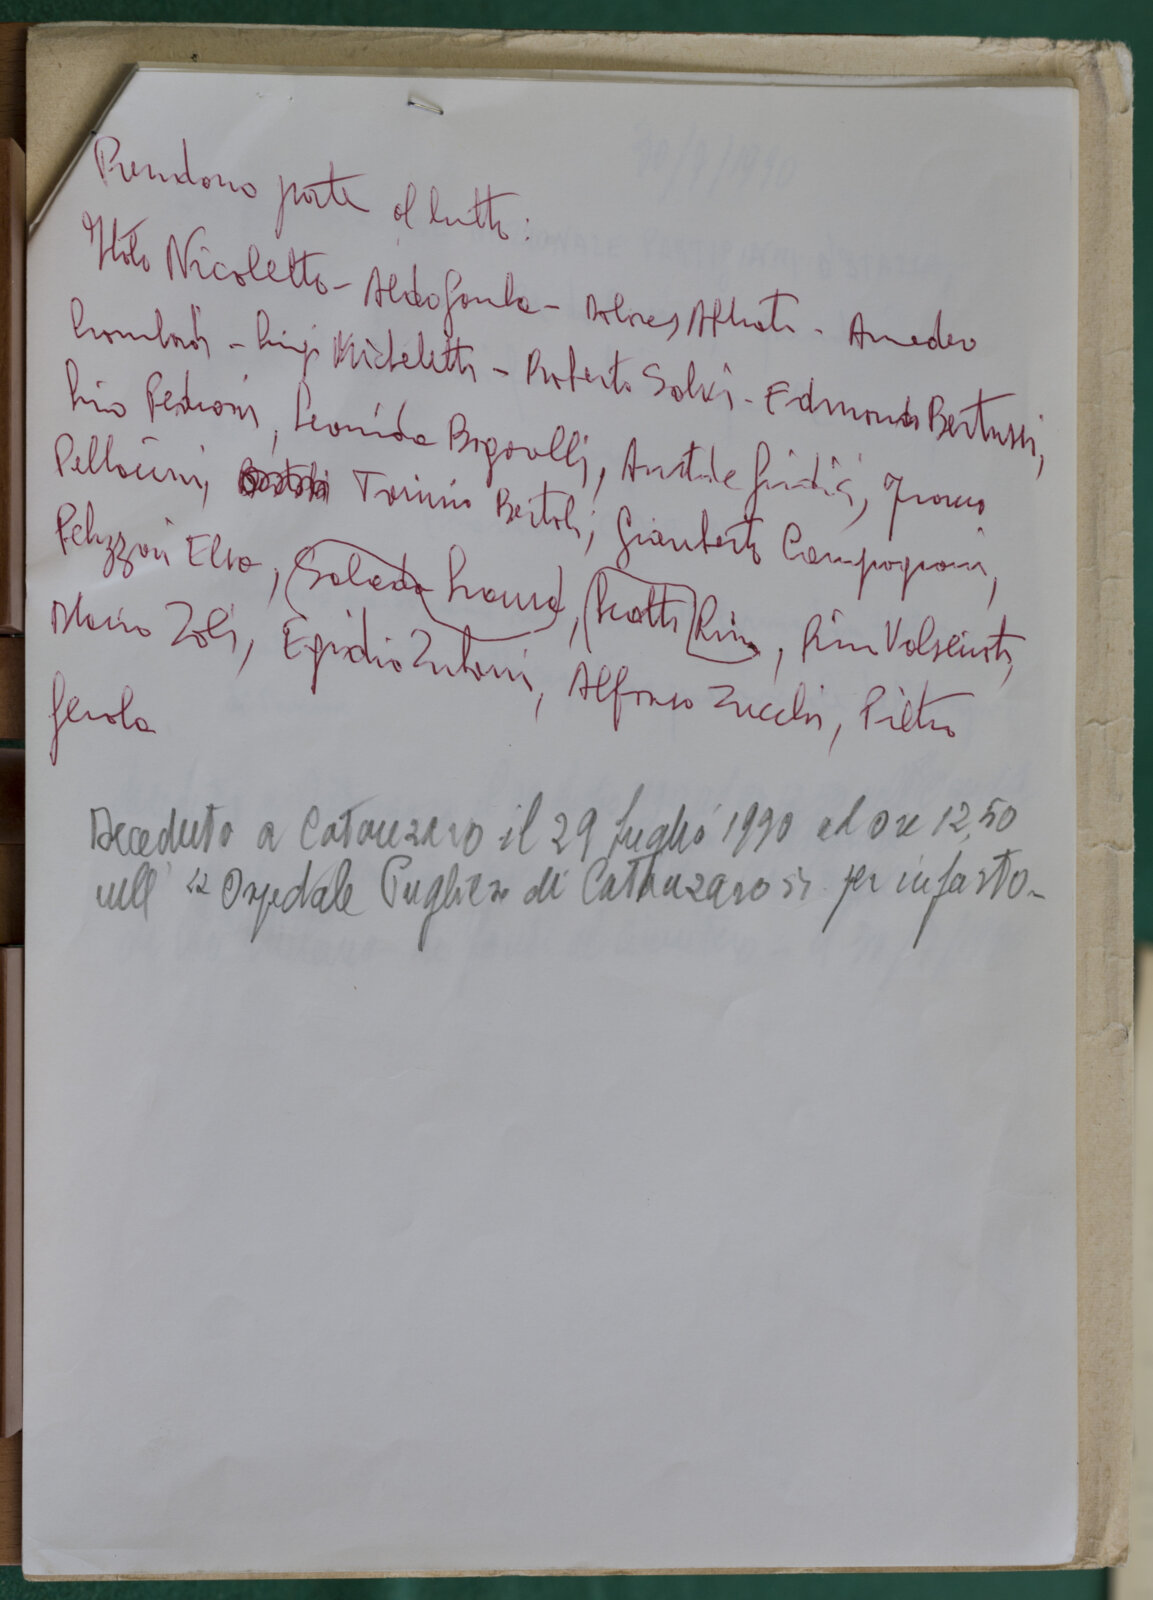 Prendono parte al lutto:
Italo Nicoletto - Aldo - Dolores Abbiati - Amedeo
Lombardi - Luigi Micheletti - Roberto Salvi - Edmondo Bertussi,
Lino Pedroni, Leonida Bogarelli, Giudici, Franco
Pellacini, Tarcisio Bertoli, Gianberto Campagnoni,
Pelizzari Elio, Rino, Valseriati,
Mario Zoli, Egidio Zutarini, Alfonso Zucchi, Pietro
Gerola
Deceduto a Catanzaro il 29 luglio 1990 ad ore 12,50
nell' Ospedale Pugliese di Catanzaro per infarto-